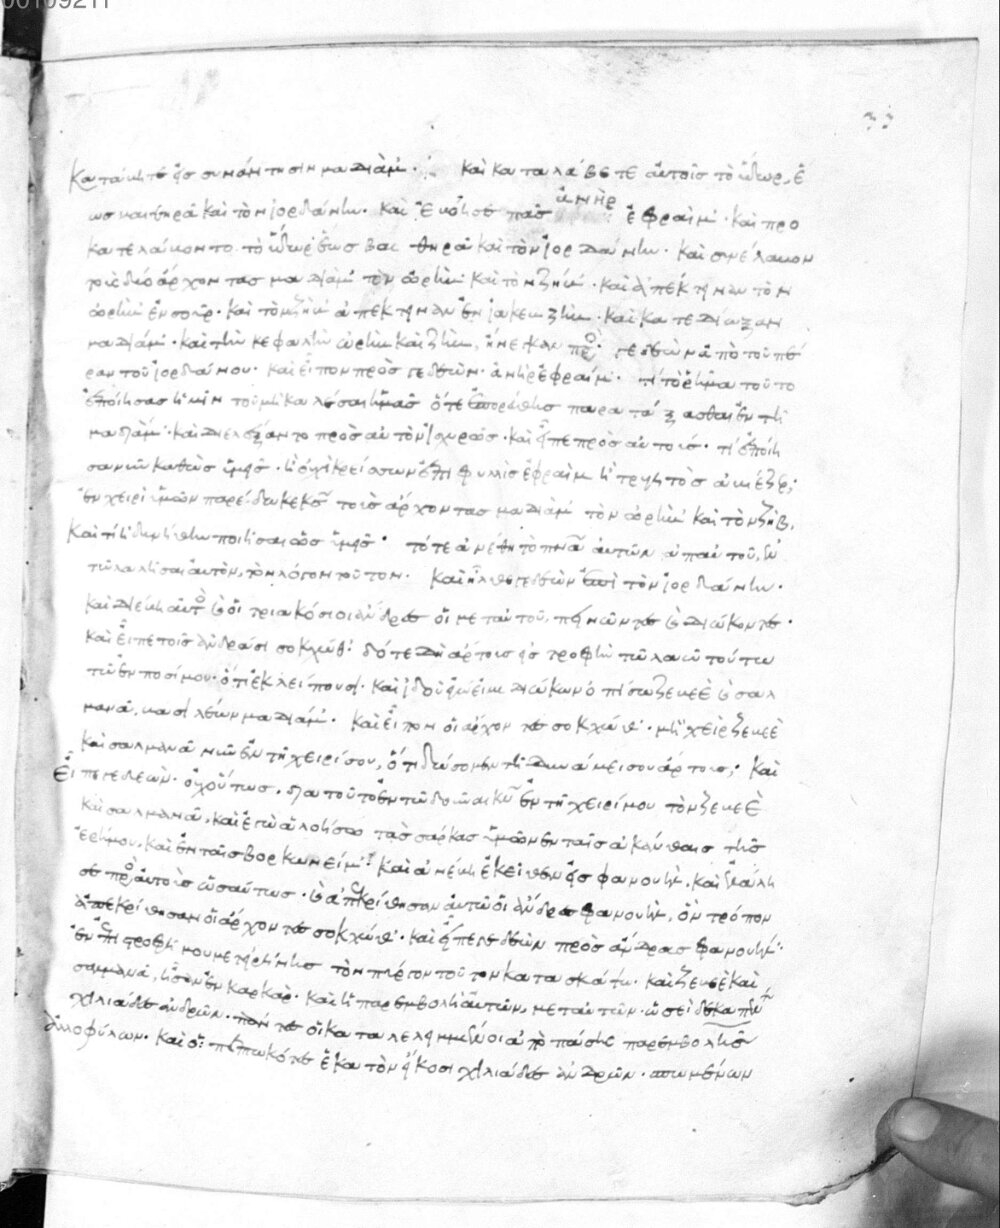 00109211
33
Κατάβητε εἰς συνάντησιν μαδιάμ· καὶ καταλάβετε αὐτοῖς τὸ ὕδωρ, ἕ
ως καὶ τὸν ἰορδάνην· καὶ ἐβόησε πᾶς ἀνὴρ ἐφραΐμ· καὶ προ
κατελάβοντο τὸ ὕδωρ ἕως βαιθηρᾶ καὶ τὸν ἰορδάνην· καὶ συνέλαβον
τοὺς δύο ἄρχοντας μαδιάμ τὸν ὠρὴβ καὶ τὸν ζήβ· καὶ ἀπέκτειναν τὸν
ὠρὴβ ἐν σούρ· καὶ τὸν ζὴβ ἀπέκτειναν ἐν ἰακεφζήβ· καὶ κατεδίωξαν
μαδιάμ· καὶ τὴν κεφαλὴν ὠρὴβ καὶ ζὴβ, ἤνεγκαν πρὸς γεδεὼν ἀπὸ τοῦ πέ
ραν τοῦ ἰορδάνου· καὶ εἶπον πρὸς γεδεών· ἀνὴρ ἐφραΐμ· τί τὸ ῥῆμα τοῦτο
ἐποίησας ἡμῖν τοῦ μὴ καλέσαι ἡμᾶς ὅτε ἐπορεύθης παρατάξασθαι ἐν τῇ
μαδιάμ· καὶ διελέξαντο πρὸς αὐτὸν ἰσχυρῶς· καὶ εἶπε πρὸς αὐτούς· τί ἐποίη
σα νῦν καθὼς ὑμεῖς· ἢ οὐχὶ κρεῖσσων ἐπιφυλλὶς ἐφραΐμ ἢ τρυγητὸς ἀβιέζερ;
ἐν χειρὶ ὑμῶν παρέδωκε κς τοὺς ἄρχοντας μαδιάμ τὸν ὠρὴβ καὶ τὸν ζήβ,
Καὶ τί ἠδυνήθην ποιῆσαι ὡς ὑμεῖς· τότε ἀνέθη τὸ πνα αὐτῶν ἀπ' αὐτοῦ, ἐν
τῷ λαλῆσαι αὐτὸν, τὸν λόγον τοῦτον· καὶ ἦλθε γεδεὼν ἐπὶ τὸν ἰορδάνην·
καὶ διέβη αὐτὸς καὶ οἱ τριακόσιοι ἄνδρες οἱ μετ' αὐτοῦ, πεινῶντες καὶ διώκοντες·
καὶ εἶπε τοῖς ἀνδράσι σοκχώθ· δότε δὴ ἄρτους εἰς τροφὴν τῷ λαῷ τούτω
τῷ ἐν ποσί μου· ὅτι ἐκλείπουσι· καὶ ἰδοὺ ἐγώ εἰμι διώκων ὀπίσω ζεβεὲ καὶ σαλ
μανά, βασιλέων μαδιάμ· καὶ εἶπον οἱ ἄρχοντες σοκχώθ· μὴ χεὶρ ζεβεὲ
καὶ σαλμανᾶ νῦν ἐν τῇ χειρί σου, ὅτι δώσομεν τῇ δυνάμει σου ἄρτους; καὶ
εἶπε γεδεών· οὐχ οὕτως· διατοῦτο ἐν τῷ δοῦναι κν ἐν τῇ χειρί μου τὸν ζεβεὲ
καὶ σαλμανᾶ, καὶ ἐγὼ ἀλοήσω τὰς σάρκας ὑμῶν ἐν ταῖς ἀκάνθαις τῆς
ἐρήμου, καὶ ἐν ταῖς βορκωνείμ· καὶ ἀνέβη ἐκεῖθεν εἰς φανουὴλ, καὶ ἐλάλη
σε πρὸς αὐτοὺς ὡσαύτως· καὶ ἀπεκρίθησαν αὐτῷ οἱ ἄνδρες φανουὴλ, ὃν τρόπον
ἀπεκρίθησαν οἱ ἄρχοντες σοκχώθ· καὶ εἶπε γεδεὼν πρὸς ἄνδρας φανουήλ·
ἐν ἐπιστροφῇ μου μετ' εἰρήνης τὸν πύργον τοῦτον κατασκάψω· καὶ ζεβεὲ καὶ
σαλμανά, ἦσαν ἐν καρκάρ· καὶ ἡ παρεμβολὴ αὐτῶν, μετ' αὐτῶν· ὡσεὶ δεκαπέντε
χιλιάδες ἀνδρῶν· πάντες οἱ καταλελειμμένοι ἀπὸ πάσης παρεμβολῆς
ἀλλοφύλων· καὶ οἱ πεπτωκότες ἑκατὸν εἴκοσι χιλιάδες ἀνδρῶν· σπωμένων